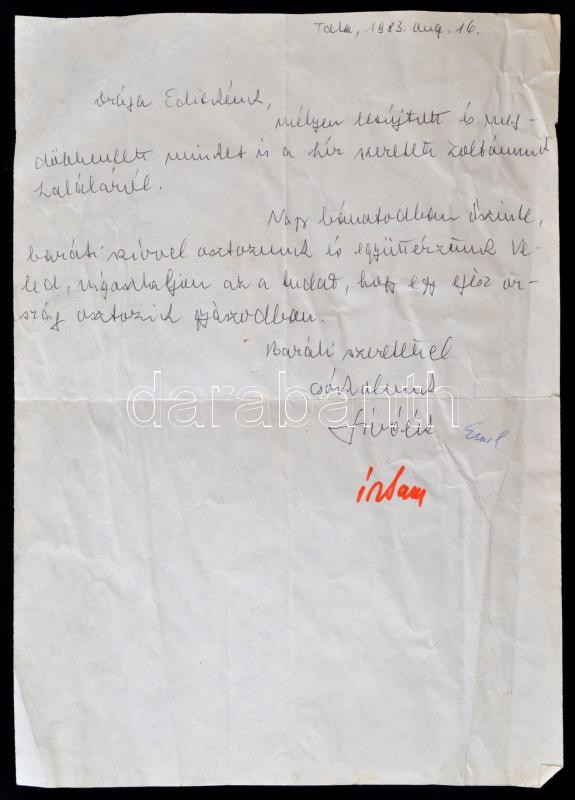 Tata, 1983. aug. 16.
Drága Editkénk,
mélyen lesújtott és meg-
döbbentett minket is a hír szeretett Zoltánunk
haláláról.
Nagy bánatodban őszinte,
baráti szívvel osztozunk és együttérzünk Ve-
led, vigasztaljon az a tudat, hogy egy egész or-
szág osztozik gyászodban.
Baráti szeretettel
csókolunk
darabanth
írtam